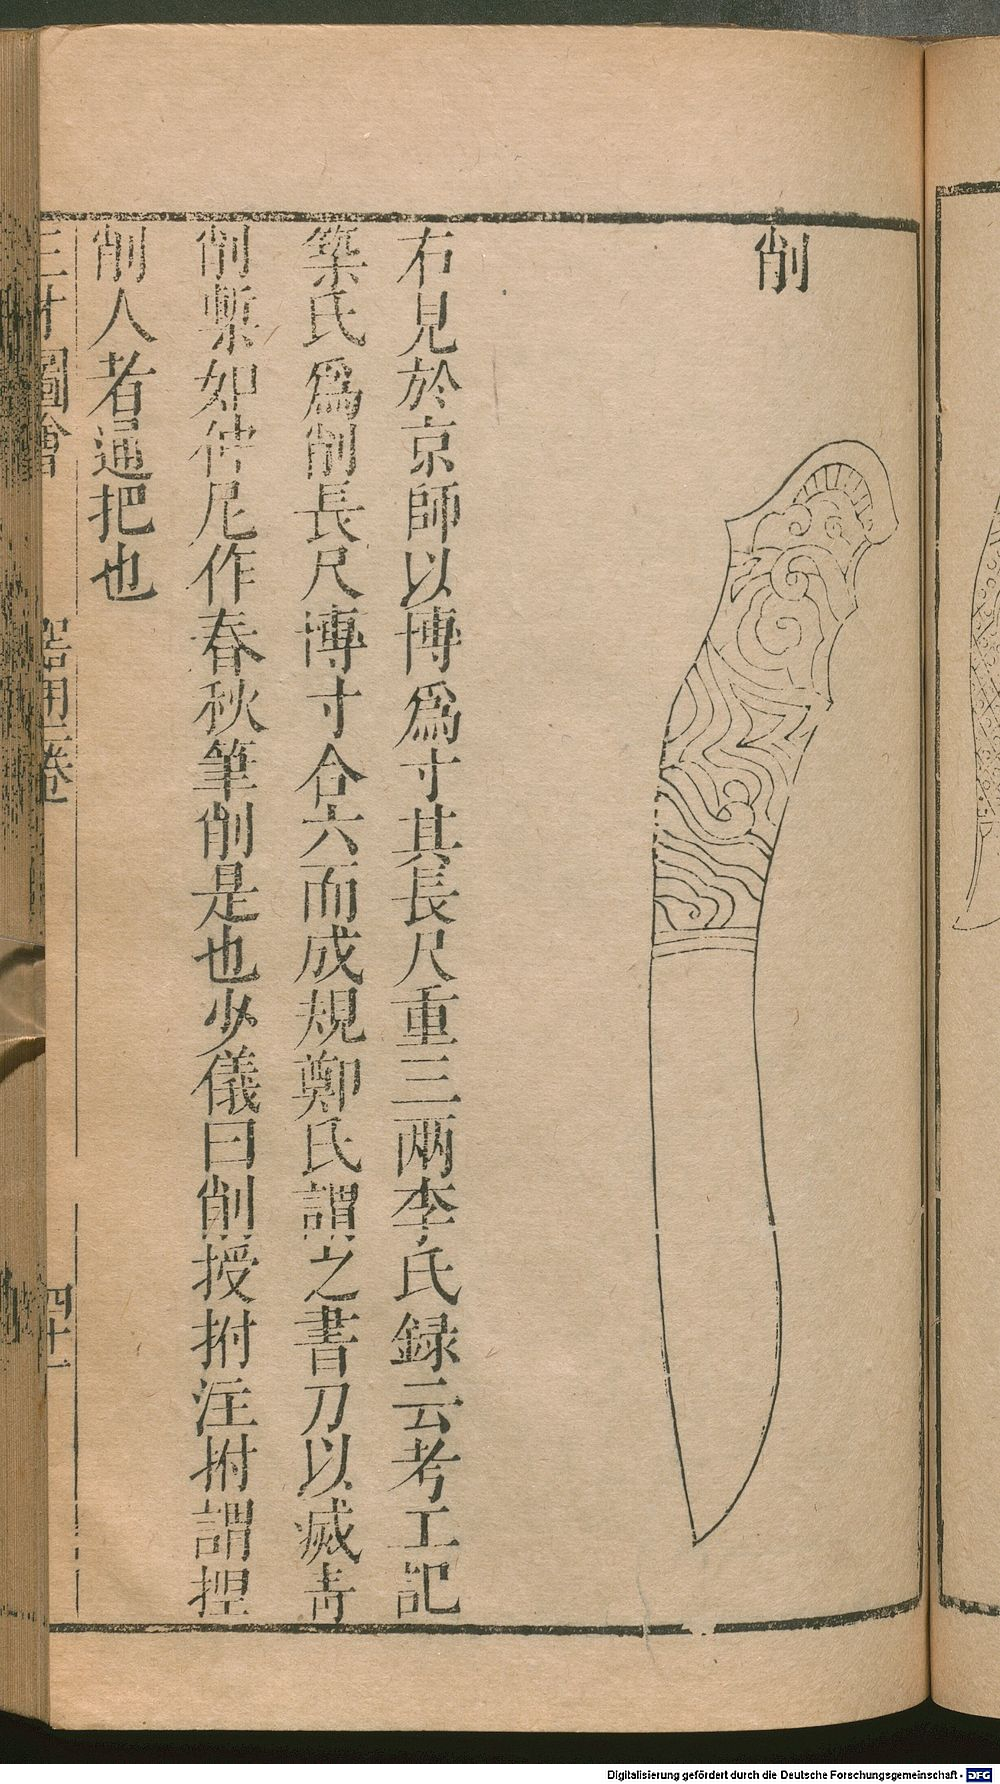 削
右見於京師以博爲寸其長尺重三兩李氏録云考工記
築氏爲削長尺博寸合六而成規鄭氏謂之書刀以滅青
削槧如仲尼作春秋筆削是也少儀曰削授拊注拊謂把
削人者逼把也
三才圖會
器用二卷
四十一
Digitalisierung gefördert durch die Deutsche Forschungsgemeinschaft - DFG